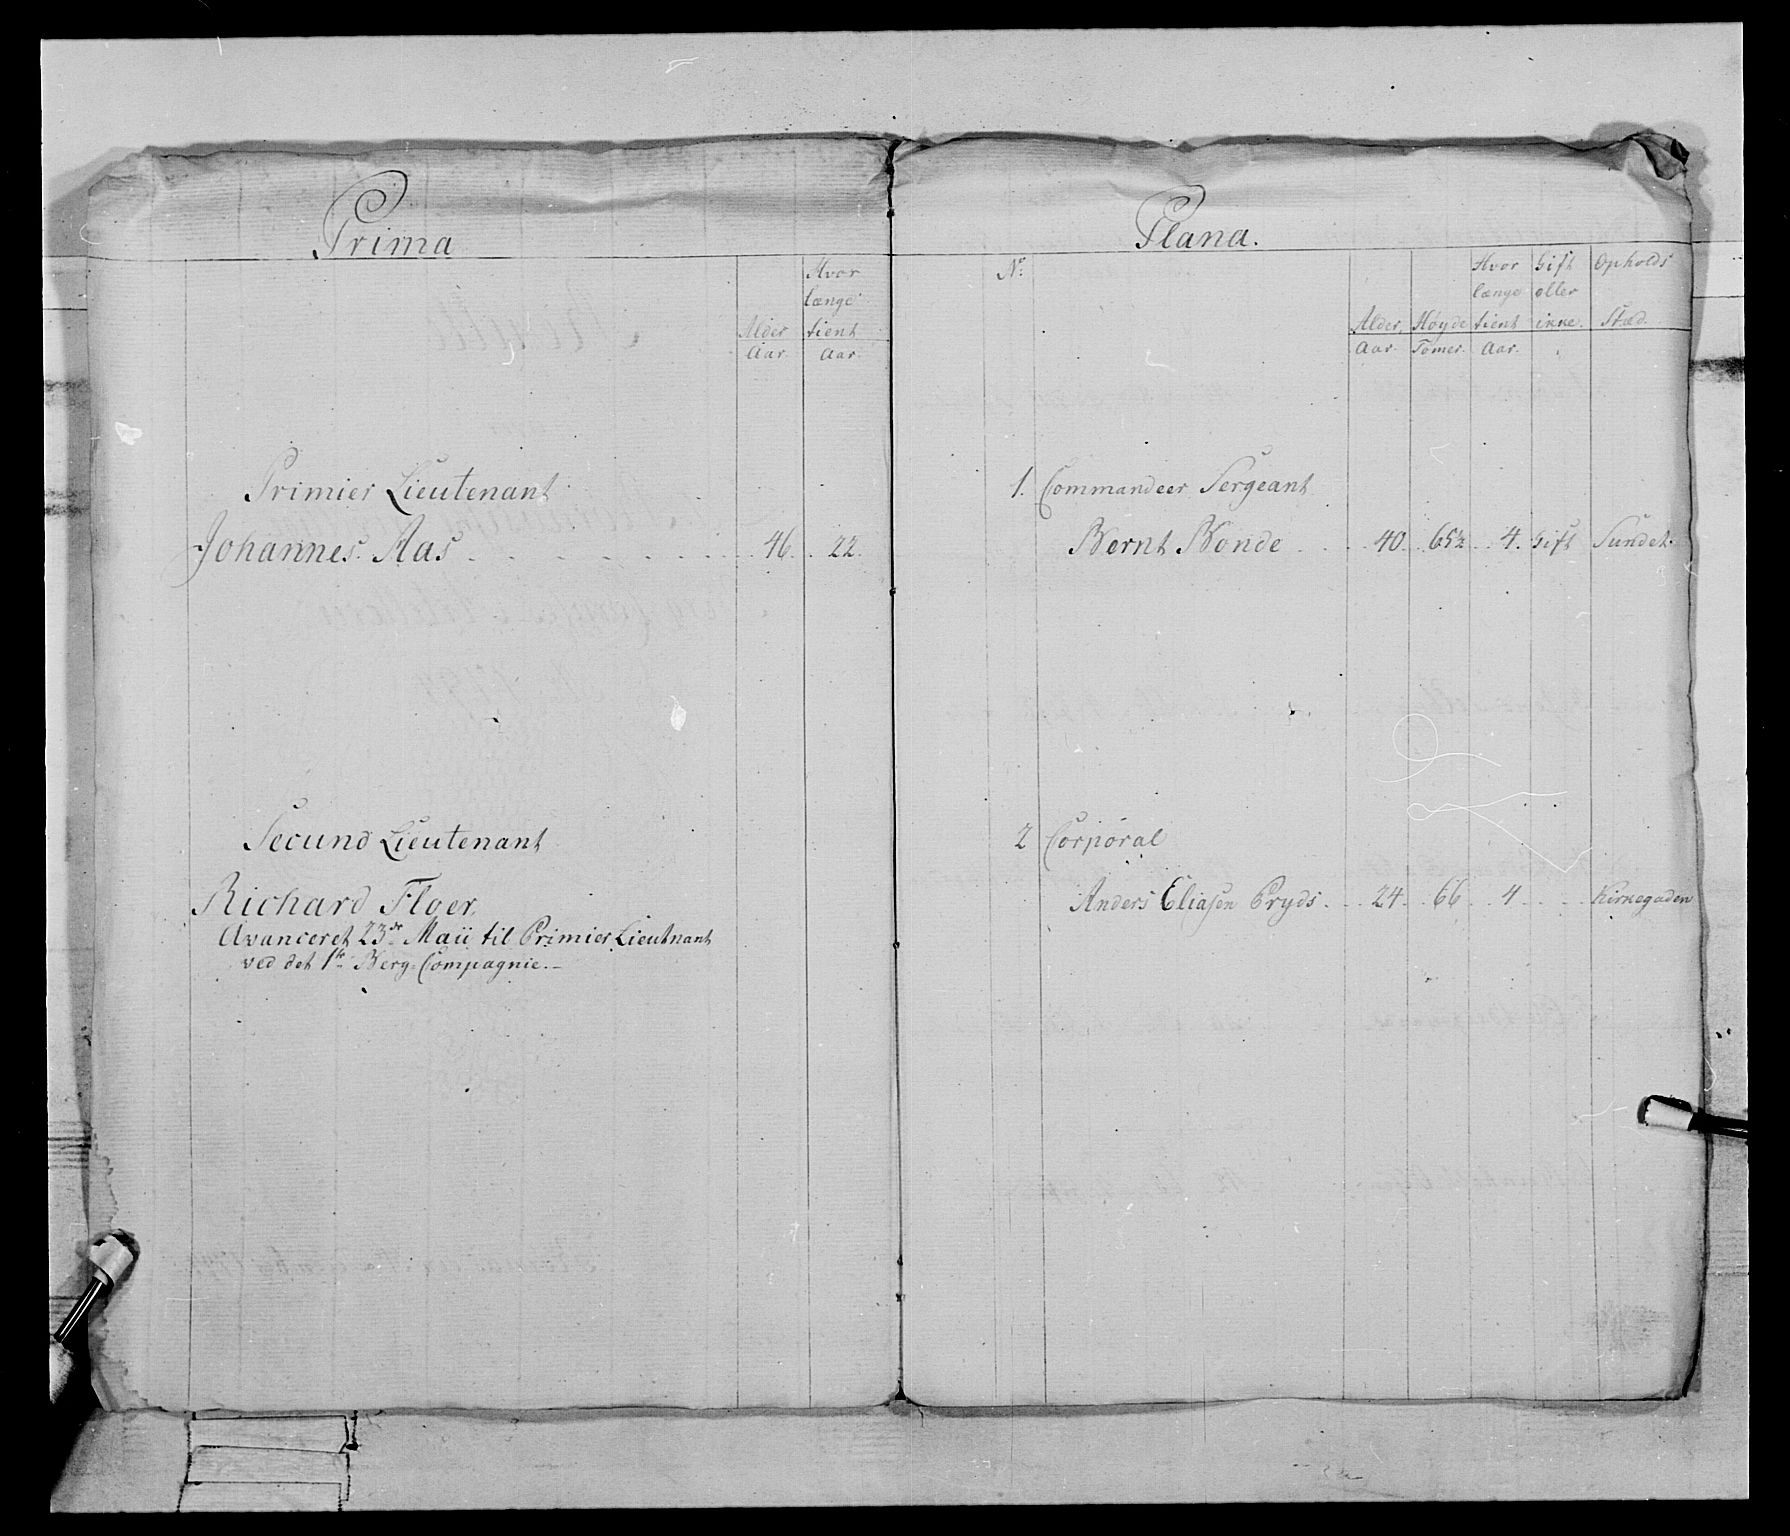 Prima
Hvor
længe
Alder tient
Aar. Aar.
Primier Lieutenant
Johannes Aas 46. 22.
Secund Lieutenant
Richard Floer,
Avanceret 23de Maii til Primier Lieutnant
ved det 1te Berg-Compagnie.-
Plana.
No. Hvor Gift Opholds
længe eller
Alder, Høyde tient ikke. Stæd.
Aar. Tomer. Aar.
1. Commandeer Sergeant
Bernt Bonde 40. 65½ 4. Gift Sundet.
2 Corporal
Anders Eliasen Pryds 24. 66 4 Kirkegaden